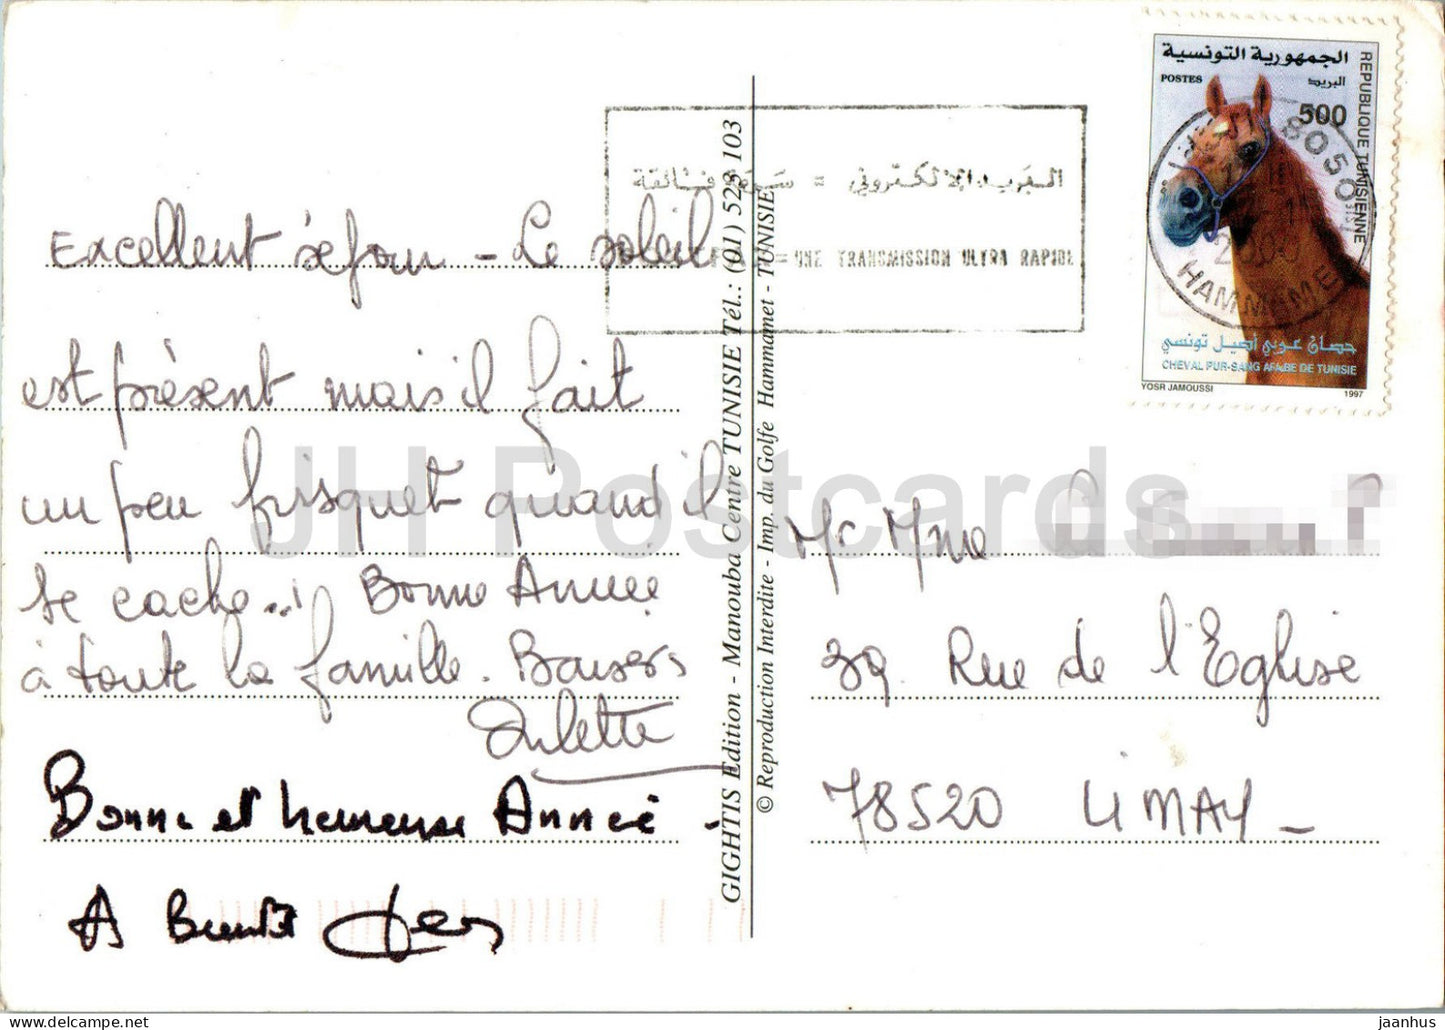 Excellent séjour - Le soleil
est présent mais il fait
un peu frisquet quand il
se cache...! Bonne Année
à toute la famille. Baisers
Juliette
Bonne et heureuse Année -
A Bientôt
GIGHTIS Edition - Manouba Centre TUNISIE Tél.: (01) 523 103
© Reproduction Interdite - Imp. du Golfe Hammamet - TUNISIE
البريد الإلكتروني = سرعة فائقة
= UNE TRANSMISSION ULTRA RAPIDE
الجمهورية التونسية
POSTES البريد
500
REPUBLIQUE TUNISIENNE
8050
2000
HAMMAME
حصان عربي أصيل تونسي
CHEVAL PUR-SANG ARABE DE TUNISIE
YOSR JAMOUSSI 1997
Mr Mme
39 Rue de l'Eglise
78520 LIMAY -
JH Postcards
https://jhpostcards.com jaanhus